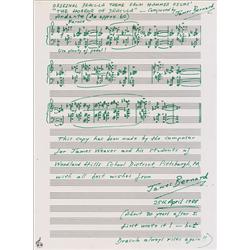 ORIGINAL DRACULA THEME FROM HAMMER FILMS'
"THE HORROR OF DRACULA" — Composed by James Bernard
Andante (♩ approx. 60)
Use plenty of pedal!
This copy has been made by the composer
for James Weaver and his students of
Woodland Hills School District Pittsburgh, PA
with all best wishes from
James Bernard
25th April 1988
(About 30 years after I
first wrote it! — but
Dracula always rises again!)